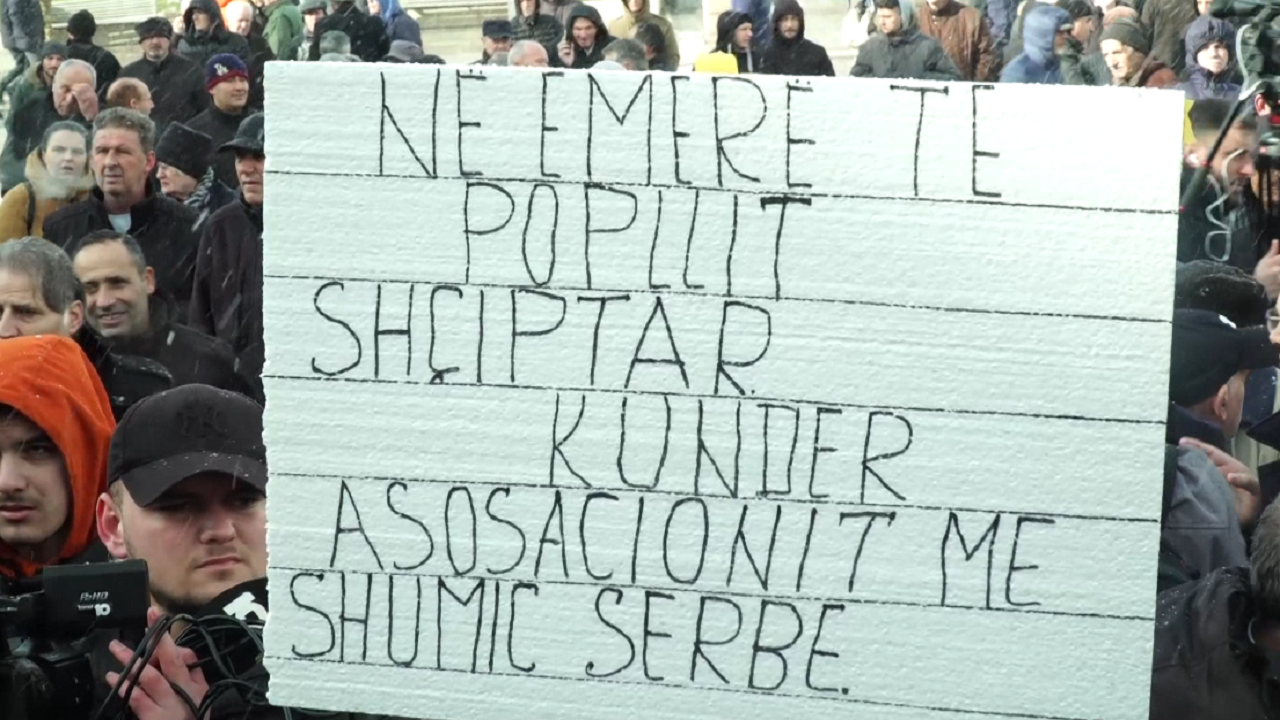 NË EMËRË TE
POPLLIT
SHÇIPTAR.
KUNDER
ASOSACIONIT ME
SHUMIC SERBE.